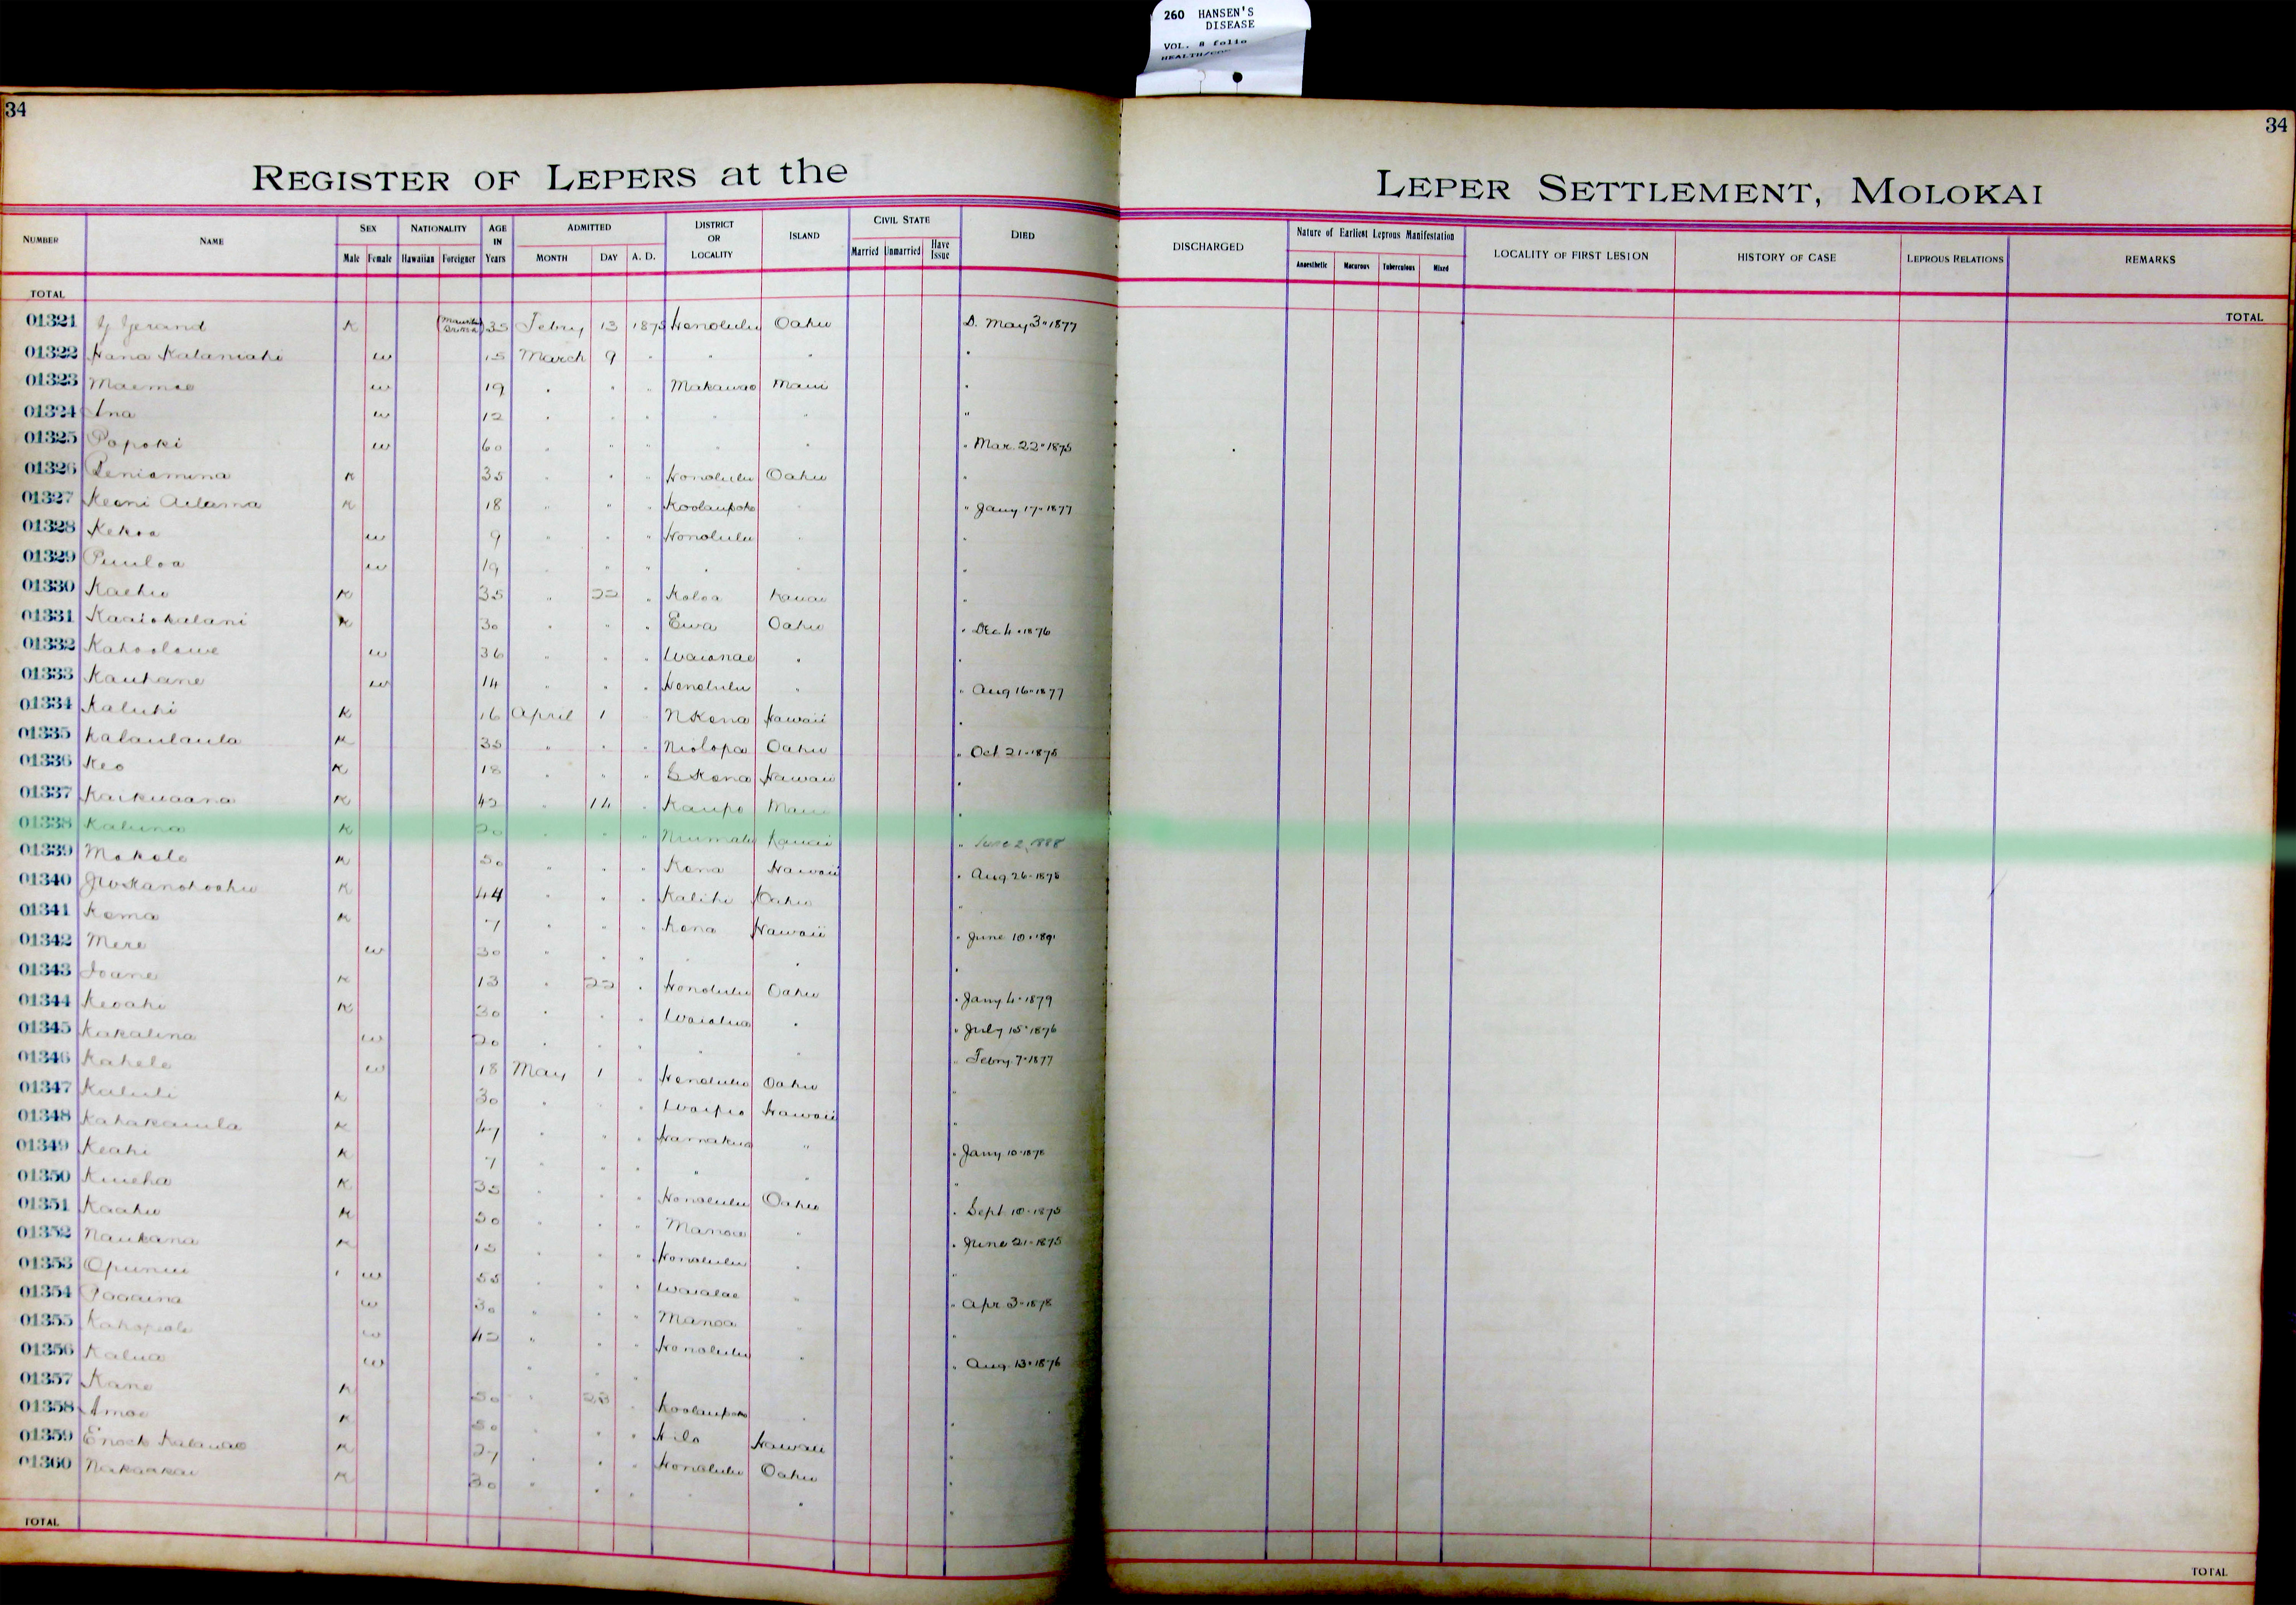 260 HANSEN'S
DISEASE
VOL. 8 folio
34
34
REGISTER OF LEPERS at the LEPER SETTLEMENT, MOLOKAI
NUMBER NAME SEX Male Female NATIONALITY Hawaiian Foreigner AGE IN Years ADMITTED MONTH DAY A. D. DISTRICT OR LOCALITY ISLAND CIVIL STATE Married Unmarried Have Issue DIED DISCHARGED Nature of Earliest Leprous Manifestation Anaesthetic Macurous Tuberculous Mixed LOCALITY OF FIRST LESION HISTORY OF CASE LEPROUS RELATIONS REMARKS
TOTAL TOTAL
01321 Gerand K 35 Febry 13 1875 Honolulu Oahu D. May 3" 1877
01322 Hana Kalaniahi w 15 March 9 " " " "
01323 Maemae w 19 " " " Makawao Maui "
01324 Ana w 12 " " " " " "
01325 Popoki w 60 " " " " " " Mar 22" 1875
01326 Peniamina K 35 " " " Honolulu Oahu "
01327 Keoni Adama K 18 " " " Koolaupoko " " Jany 17" 1877
01328 Kekoa w 9 " " " Honolulu " "
01329 Puuloa w 19 " " " " " "
01330 Kaehu K 35 " 22 " Koloa Kauai "
01331 Kaaiokalani K 30 " " " Ewa Oahu " Dec 4" 1876
01332 Kahoolawe w 36 " " " Waianae " "
01333 Kauhane w 14 " " " Honolulu " " Aug 16" 1877
01334 Kaluhi K 16 April 1 " N Kona Hawaii "
01335 Kalaulaula K 35 " " " Niolopa Oahu " Oct 21" 1875
01336 Keo K 18 " " " S Kona Hawaii "
01337 Kaikuaana K 42 " 14 " Kaupo Maui "
01338 Kaluna K 20 " " " Niumalu Kauai " June 2, 1888
01339 Makole K 50 " " " Kona Hawaii " Aug 26" 1878
01340 JW Kanohoahu K 44 " " " Kalihi Oahu "
01341 Koma K 7 " " " Kona Hawaii " June 10" 1891
01342 Mere w 30 " " " " " "
01343 Ioane K 13 " 22 " Honolulu Oahu " Jany 4" 1879
01344 Keoahi K 30 " " " Waialua " " July 15" 1876
01345 Kakalina w 20 " " " " " " Febry 7" 1877
01346 Kahele w 18 May 1 " Honolulu Oahu "
01347 Kaluli K 30 " " " Waipio Hawaii "
01348 Kahakauila K 47 " " " Hamakua " " Jany 10" 1878
01349 Keahi K 7 " " " " " "
01350 Kuieha K 35 " " " Honolulu Oahu " Sept 10" 1875
01351 Kaahu K 50 " " " Manoa " " June 21" 1875
01352 Naukana K 15 " " " Honolulu " "
01353 Opunui w 55 " " " Waialae " " Apr 3" 1878
01354 Paaaina w 30 " " " Manoa " "
01355 w 42 " " " Honolulu " " Aug 13" 1876
01356 Kalua w " " "
01357 Kane K 50 " 23 " Koolaupoko " "
01358 Amoe K 50 " " " Hilo Hawaii "
01359 Enoch Kalawao K 27 " " " Honolulu Oahu "
01360 Nakaakai K 30 " " " " " "
TOTAL TOTAL